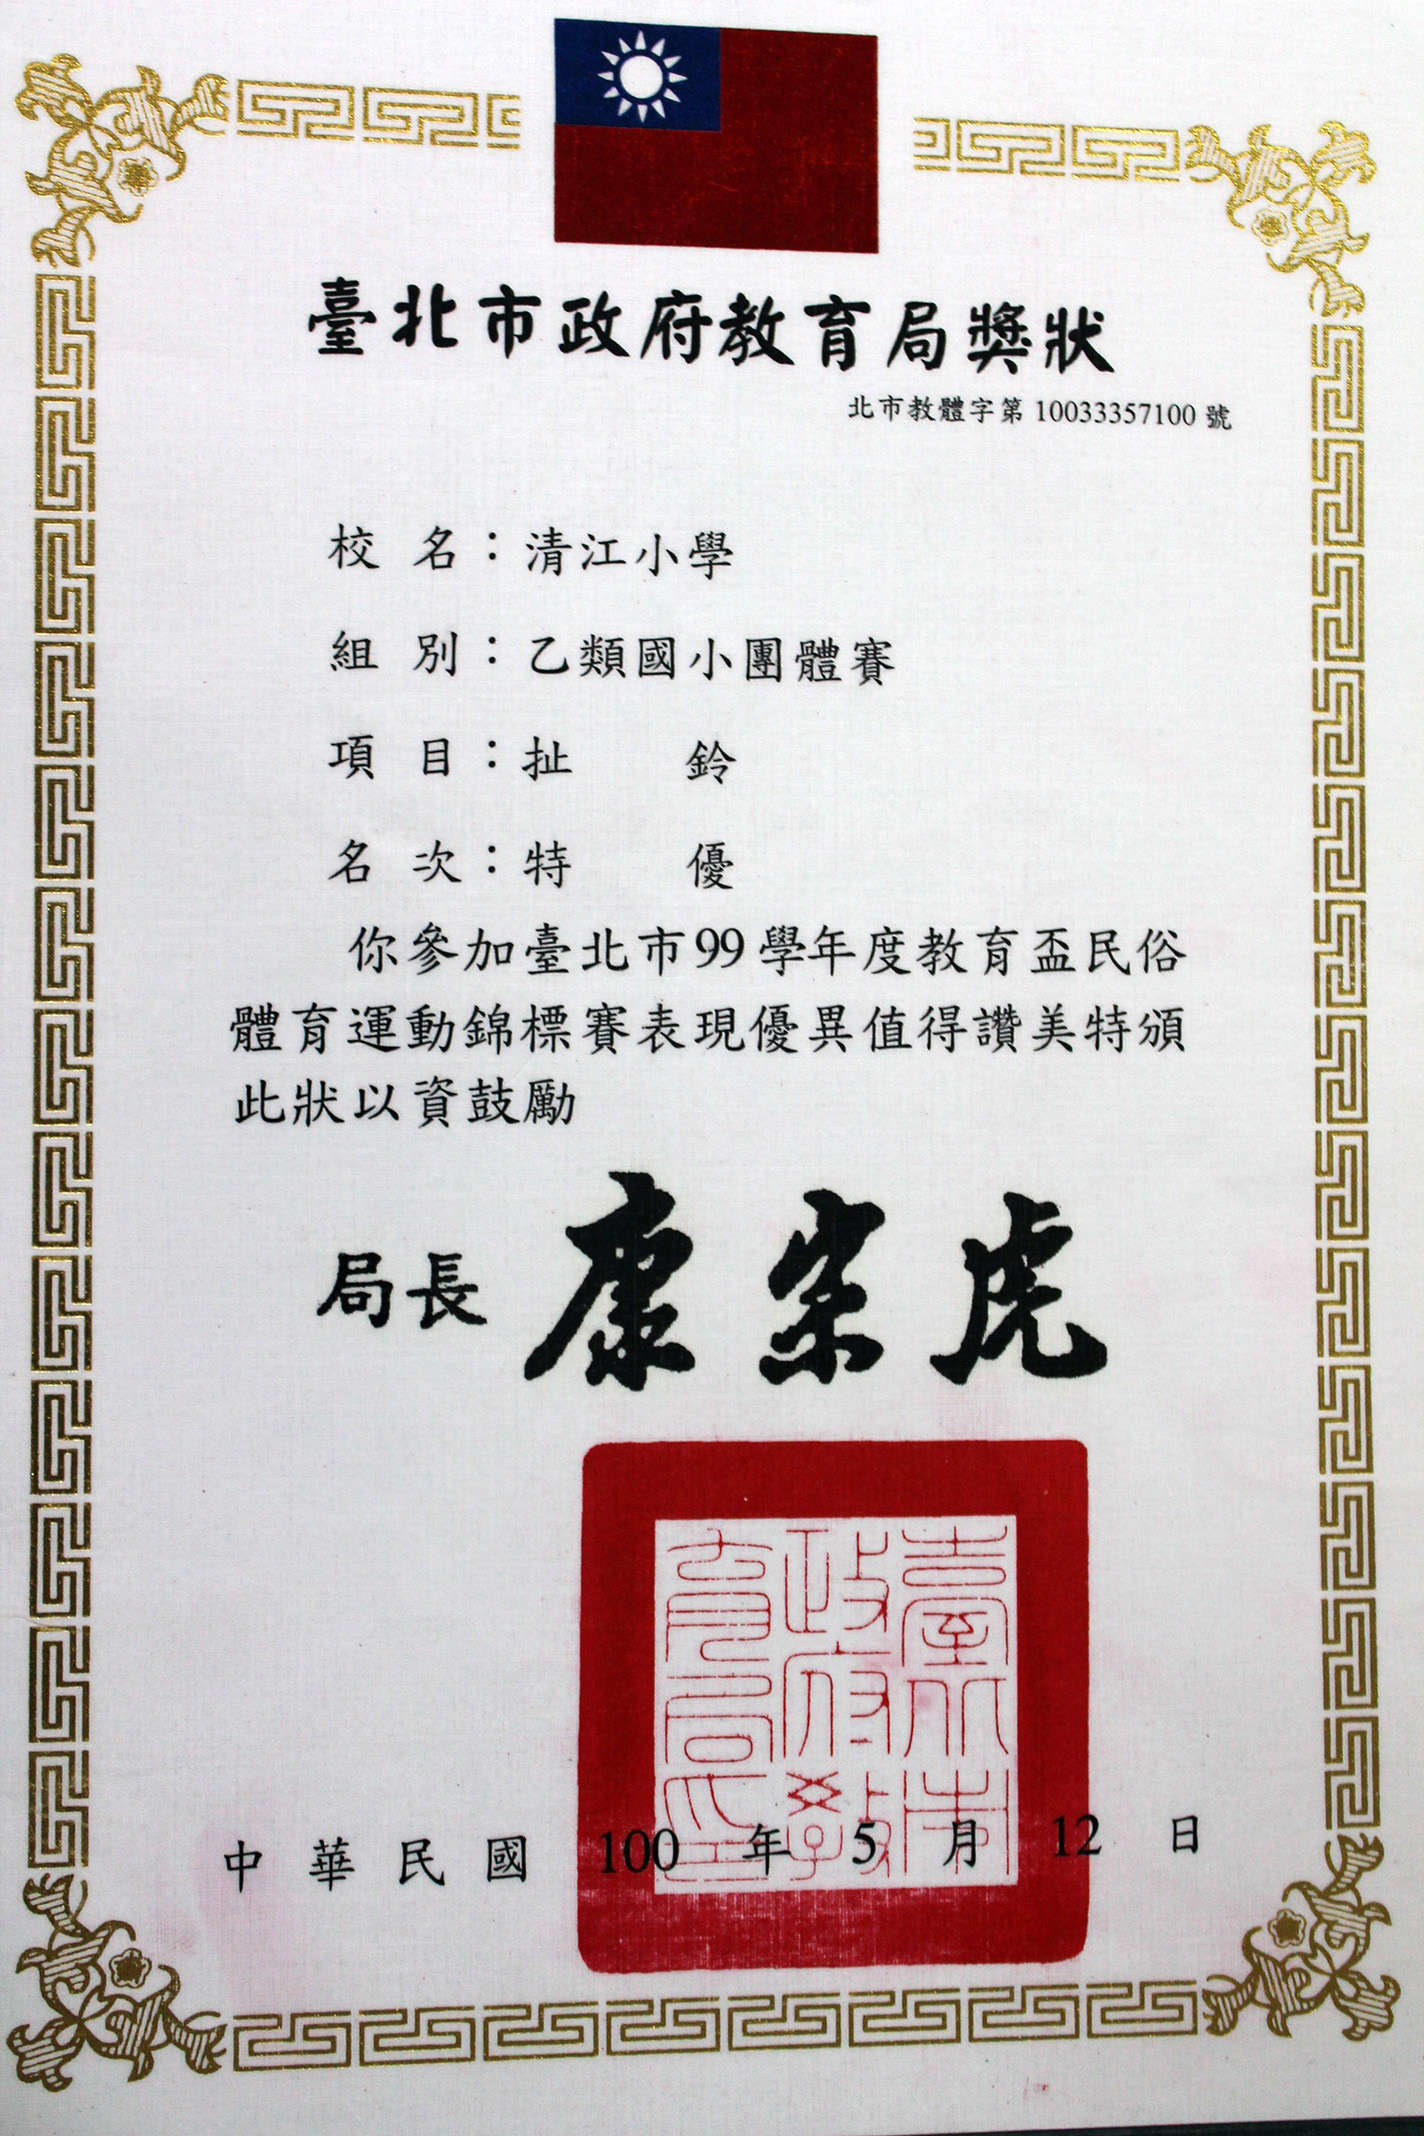 臺北市政府教育局獎狀
北市教體字第 10033357100 號
校名：清江小學
組別：乙類國小團體賽
項目：扯鈴
名次：特優
你參加臺北市99學年度教育盃民俗
體育運動錦標賽表現優異值得讚美特頒
此狀以資鼓勵
局長 康宗虎
臺北市政府教育局印
中華民國 100 年 5 月 12 日